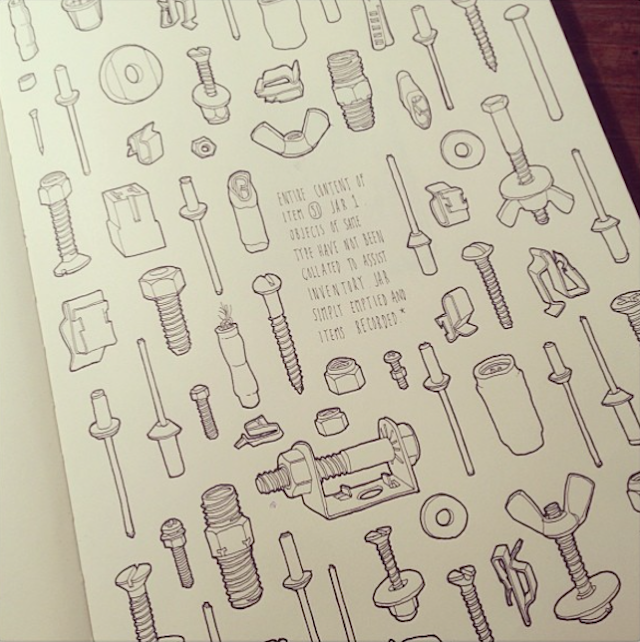 ENTIRE CONTENT OF
JAR 1
OBJECTS OF SAME
TYPE HAVE NOT BEEN
COLLATED TO ASSIST
INVENTORY. JAR
SIMPLY EMPTIED AND
ITEMS RECORDED.*